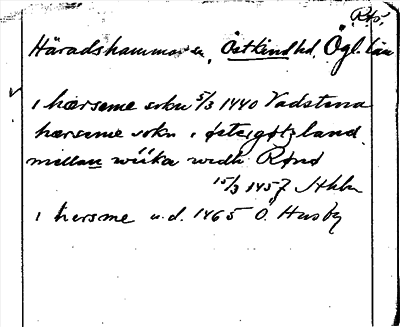 Rtb.
Häradshammar sn, Östkind hd, Ögl. län
i hærseme sokn 5/3 1440 Vadstena
hærseme sokn i østergøtzland
millan wiika widh Rønø
15/3 1457 Sthlm
i hersme u.d. 1465 Ö. Husby